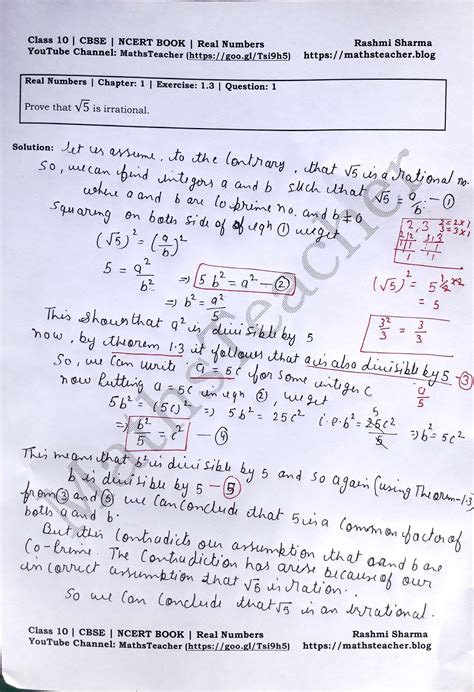 Class 10 | CBSE | NCERT BOOK | Real Numbers Rashmi Sharma
YouTube Channel: MathsTeacher (https://goo.gl/Tsi9h5) https://mathsteacher.blog
Real Numbers | Chapter: 1 | Exercise: 1.3 | Question: 1
Prove that √5 is irrational.
Solution: Let us assume, to the contrary, that √5 is a rational no.
So, we can find integers a and b such that √5 = a/b - ①
where a and b are co-prime no. and b ≠ 0
Squaring on both side of eqn ① we get
(√5)² = (a/b)²
5 = a²/b² ⇒ 5b² = a² - ②
⇒ b² = a²/5
2, 3 2 = 2×1
3 = 3×1
(√5)² = 5^(1/2 ×2)
= 5
3²/3 = 3/3
This shows that a² is divisible by 5
now, by theorem 1.3 it follows that a is also divisible by 5 - ③
So, we can write a = 5c for some integer c
a/5
now putting a = 5c in eqn ②, we get
5b² = (5c)² ⇒ 5b² = 25c² i.e. b² = 25c²/5 ⇒ b² = 5c²
⇒ b²/5 = c² - ④
This means that b² is divisible by 5 and so again (using Theorm-1.3)
b is divisible by 5 - ⑤
from ③ and ⑤ we can conclude that 5 is a common factor of
both a and b.
But this contradicts our assumption that a and b are
Co-prime. The Contradiction has arise because of our
incorrect assumption that √5 is ration.
So we can conclude that √5 is an irrational.
Class 10 | CBSE | NCERT BOOK | Real Numbers Rashmi Sharma
YouTube Channel: MathsTeacher (https://goo.gl/Tsi9h5) https://mathsteacher.blog
MathsTeacher